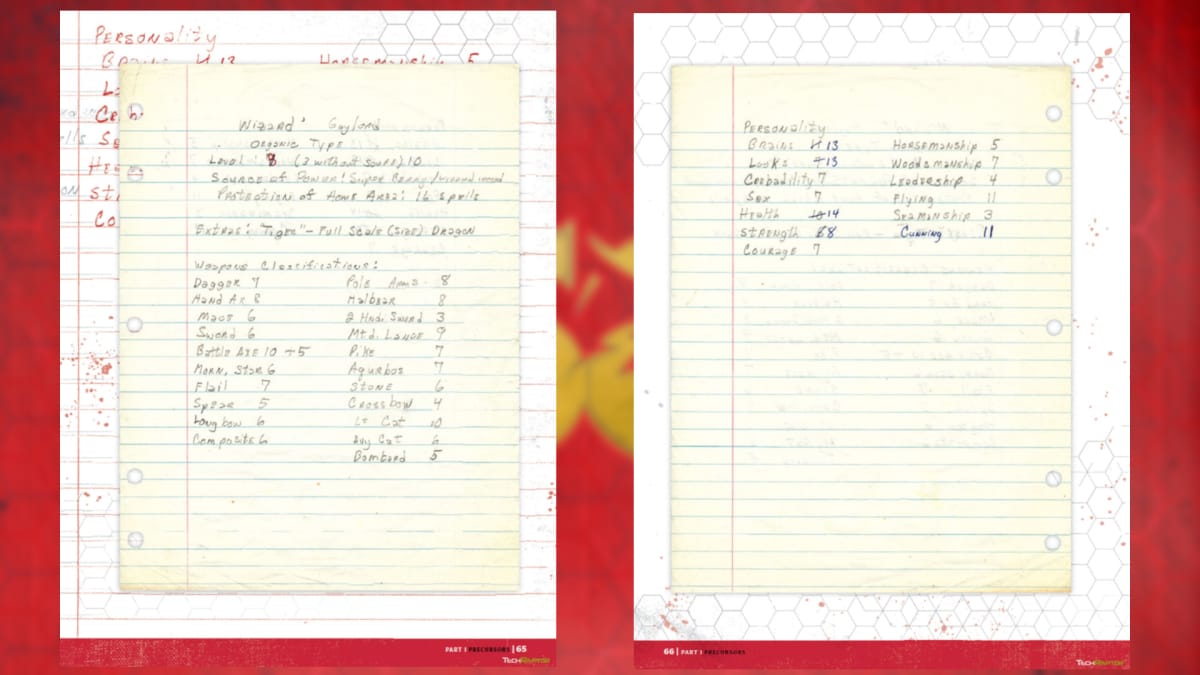 PERSONALITY
Horsemanship 5
Wizard' Gaylord
Organic Type
Level 8 (3 without source) 10
Source of Power: Super Berry/
Protection of Home Area: 16 spells
Extras: "Tigre" - Full Scale (size) Dragon
Weapons Classifications:
Dagger 7 Pole Arms 8
Hand Ax 8 Halbear 8
Mace 6 2 Hnd. Sword 3
Sword 6 Mtd. Lance 9
Battle Axe 10 +5 Pike 7
Morn. Star 6 Aqurbos 7
Flail 7 Stone 6
Spear 5 Crossbow 4
Longbow 6 Lt Cat 10
Composite 6 Hvy Cat 6
Bombard 5
PART I PRECURSORS | 65
TECHRAPTOR
PERSONALITY
BRAINS 13 Horsemanship 5
Looks 13 Woodsmanship 7
Crebadility 7 Leadership 4
Sex 7 Flying 11
Health 14 Seamanship 3
STRENGTH 8 Cunning 11
Courage 7
66 | PART I PRECURSORS
TECHRAPTOR